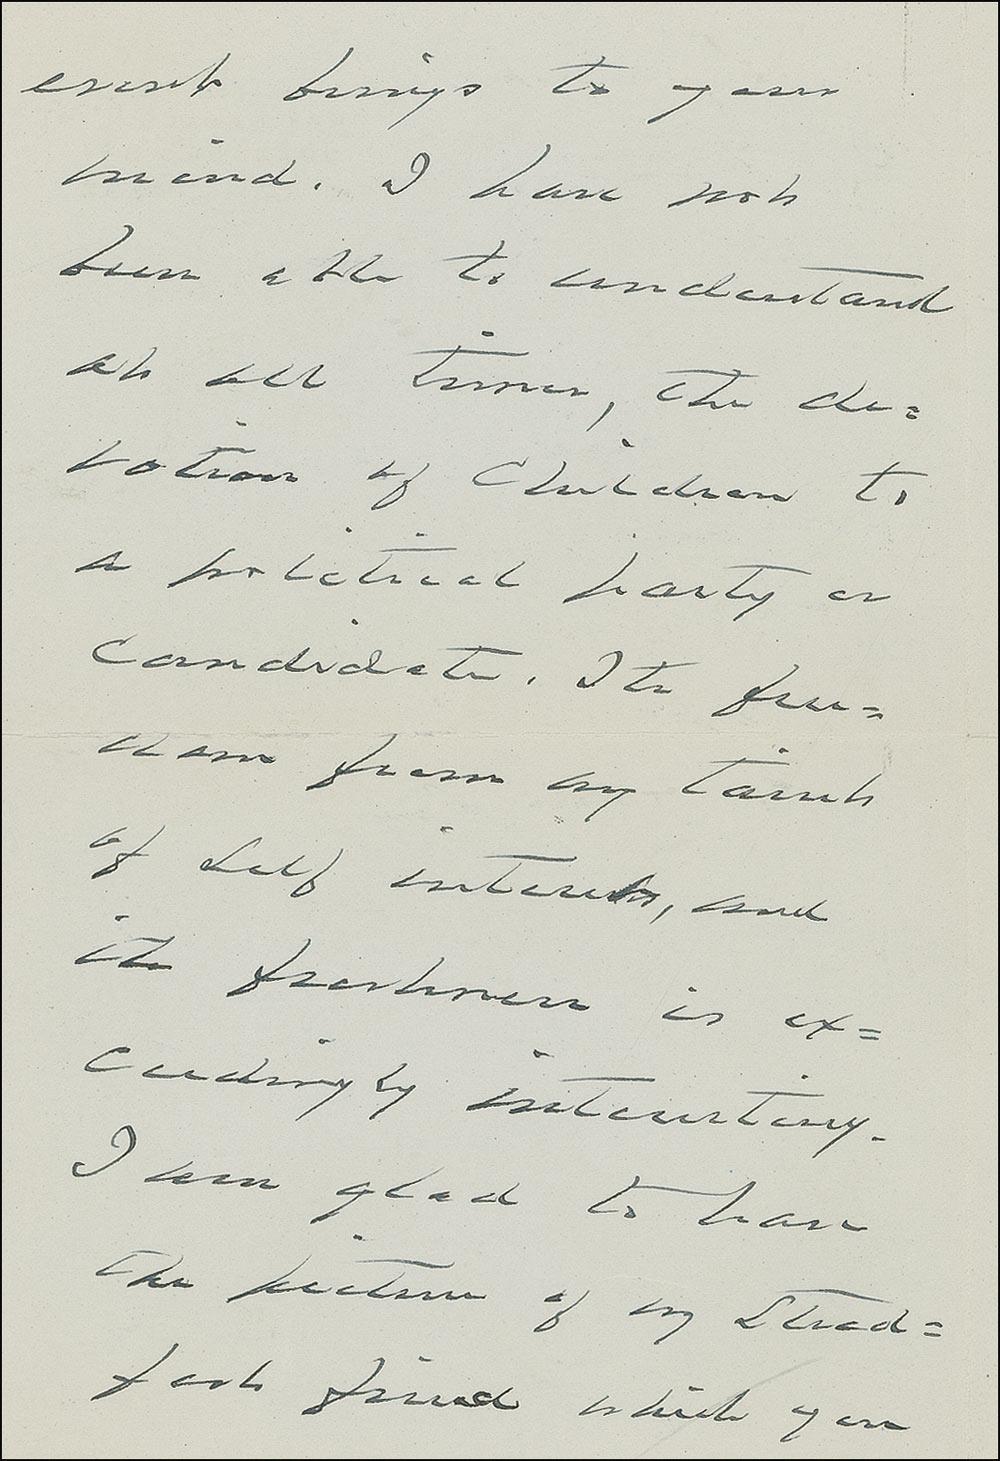 event brings to your
mind. I have not
been able to understand
at all times, the de=
votion of Children to
a political party or
Candidate. Its free=
dom from any taint
of Self interest, and
its freshness is ex=
ceedingly interesting.
I am glad to have
the picture of my Stead=
fast friend which you